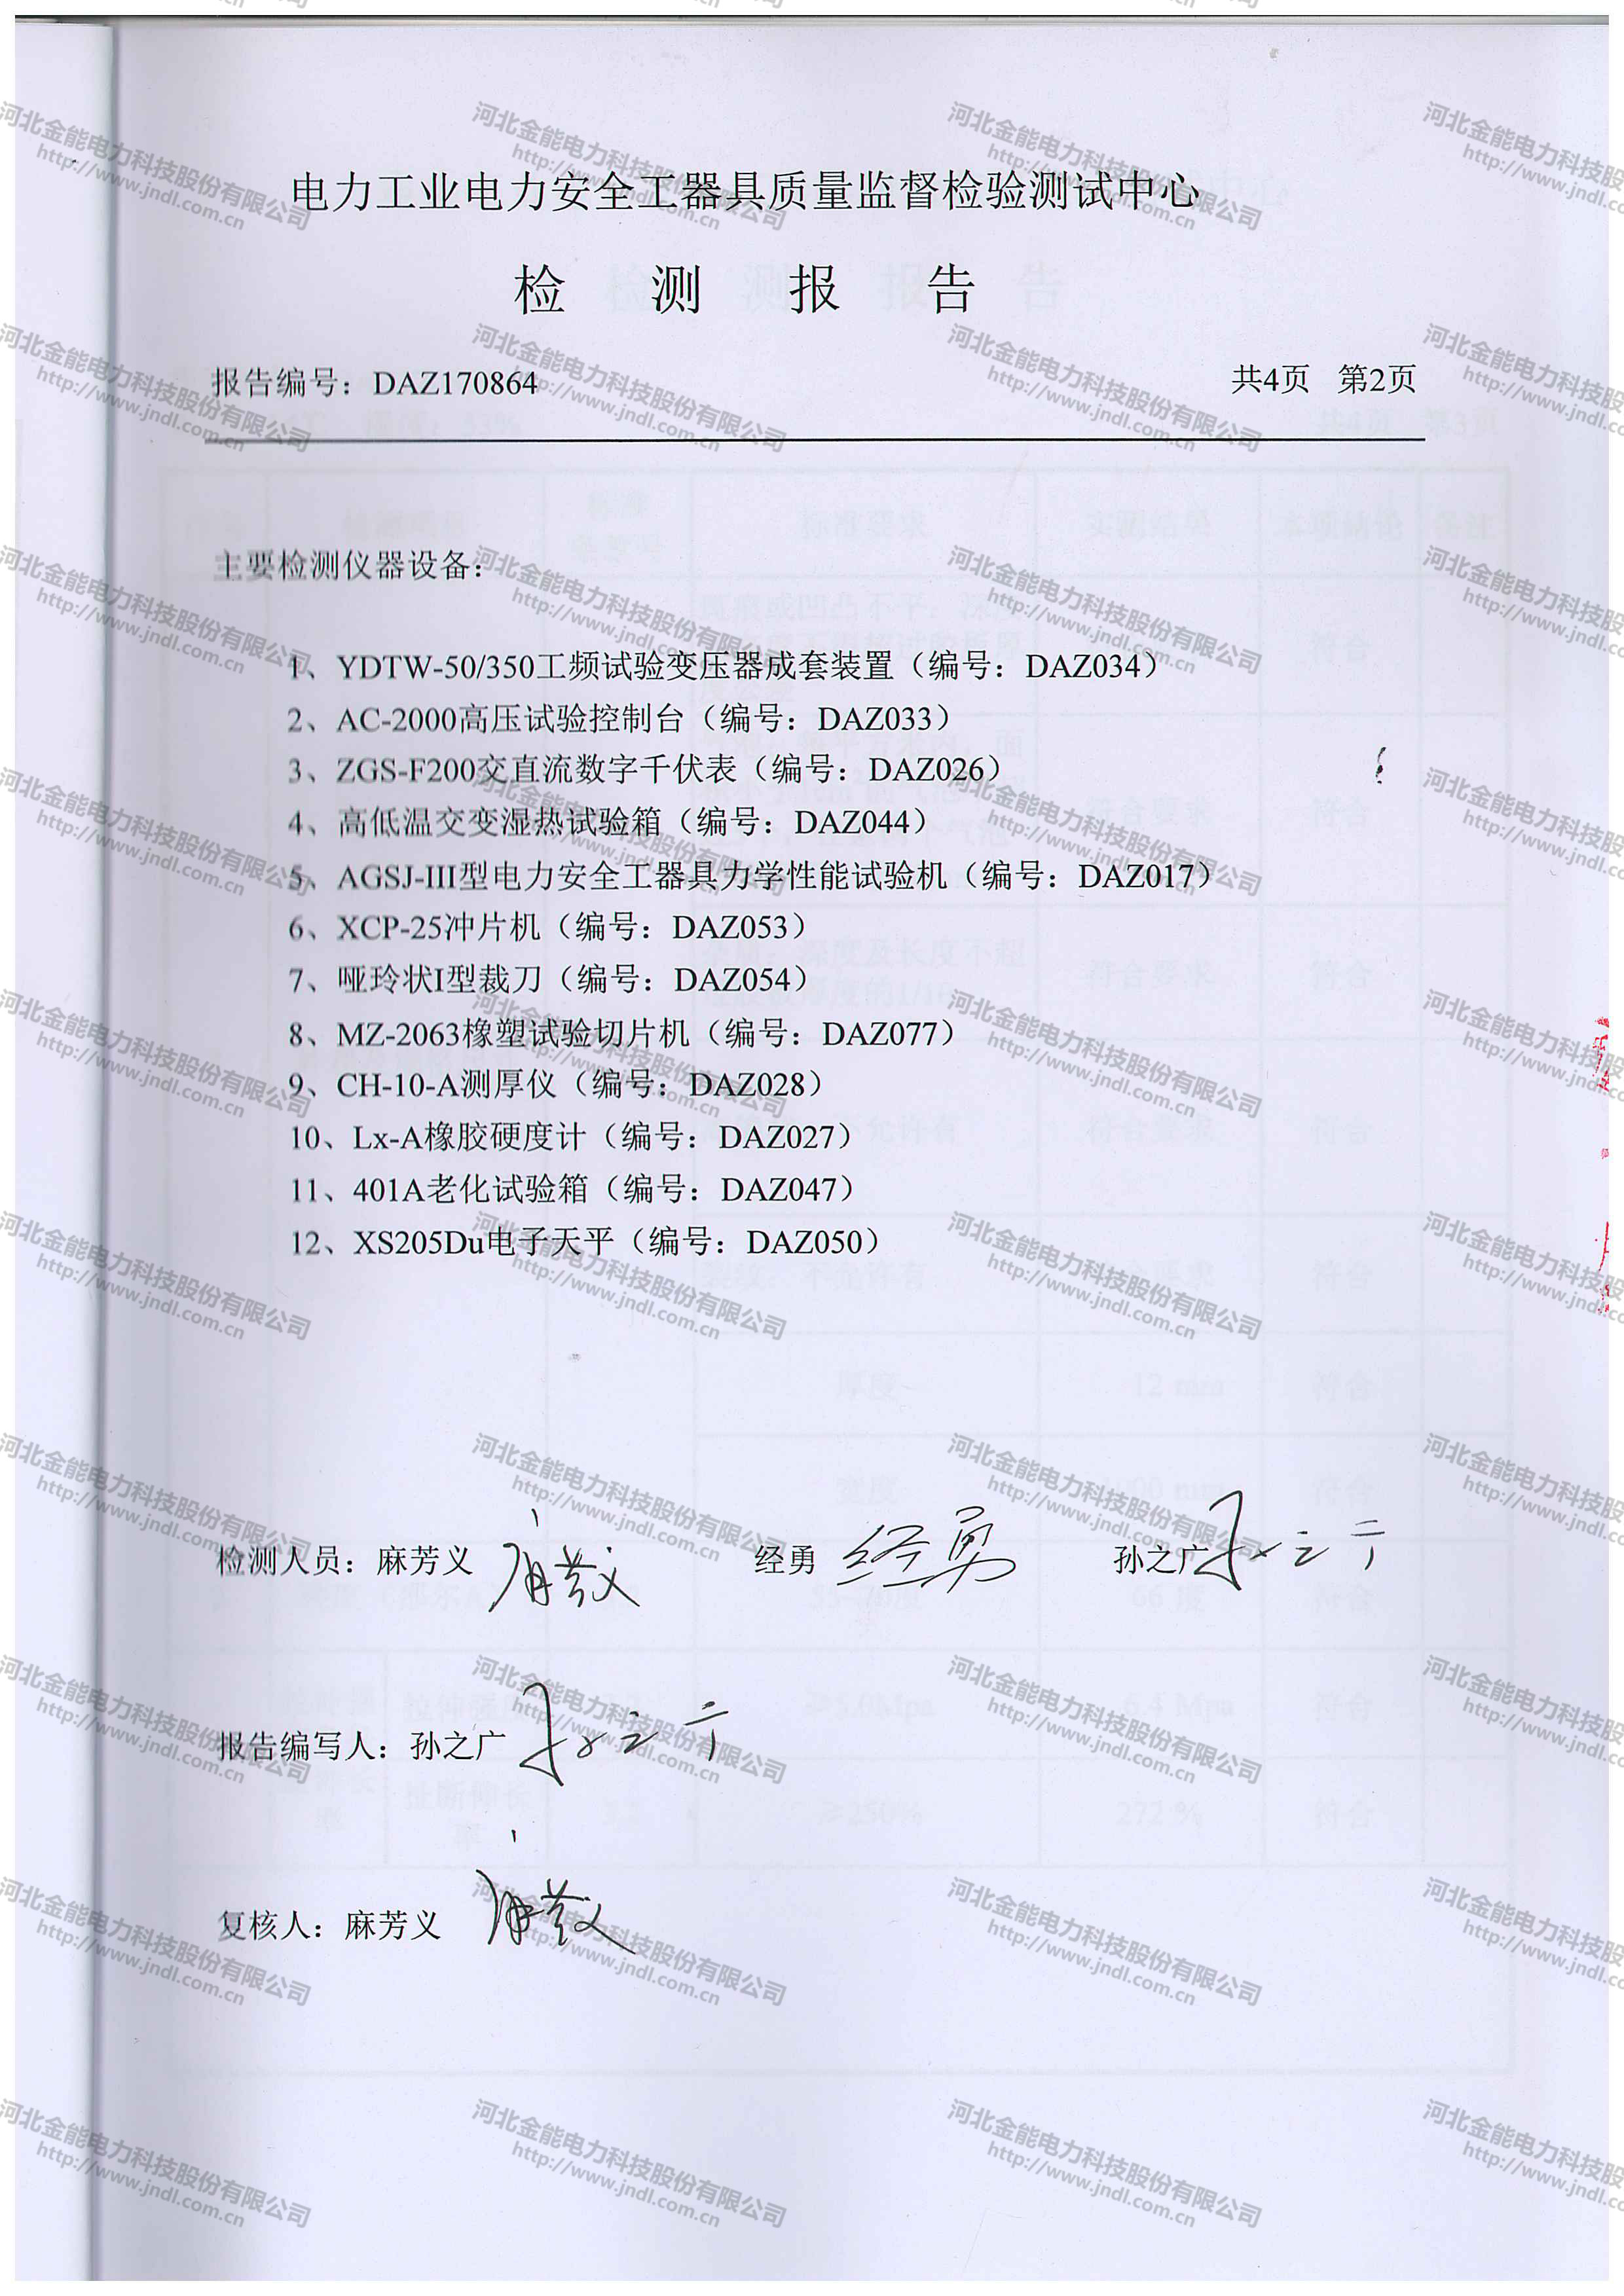 电力工业电力安全工器具质量监督检验测试中心
检 测 报 告
报告编号：DAZ170864 共4页 第2页
主要检测仪器设备：
1、YDTW-50/350工频试验变压器成套装置（编号：DAZ034）
2、AC-2000高压试验控制台（编号：DAZ033）
3、ZGS-F200交直流数字千伏表（编号：DAZ026）
4、高低温交变湿热试验箱（编号：DAZ044）
5、AGSJ-III型电力安全工器具力学性能试验机（编号：DAZ017）
6、XCP-25冲片机（编号：DAZ053）
7、哑玲状I型裁刀（编号：DAZ054）
8、MZ-2063橡塑试验切片机（编号：DAZ077）
9、CH-10-A测厚仪（编号：DAZ028）
10、Lx-A橡胶硬度计（编号：DAZ027）
11、401A老化试验箱（编号：DAZ047）
12、XS205Du电子天平（编号：DAZ050）
检测人员：麻芳义 麻芳义 经勇 经勇 孙之广 孙之广
报告编写人：孙之广 孙之广
复核人：麻芳义 麻芳义
河北金能电力科技股份有限公司
http://www.jndl.com.cn